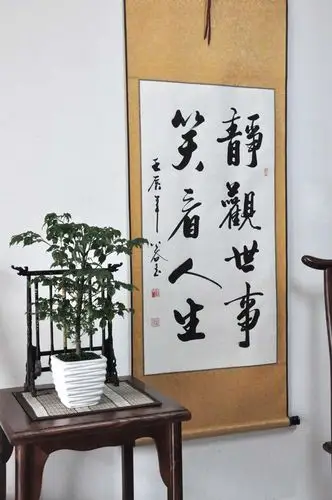 靜觀世事
笑看人生
壬辰年